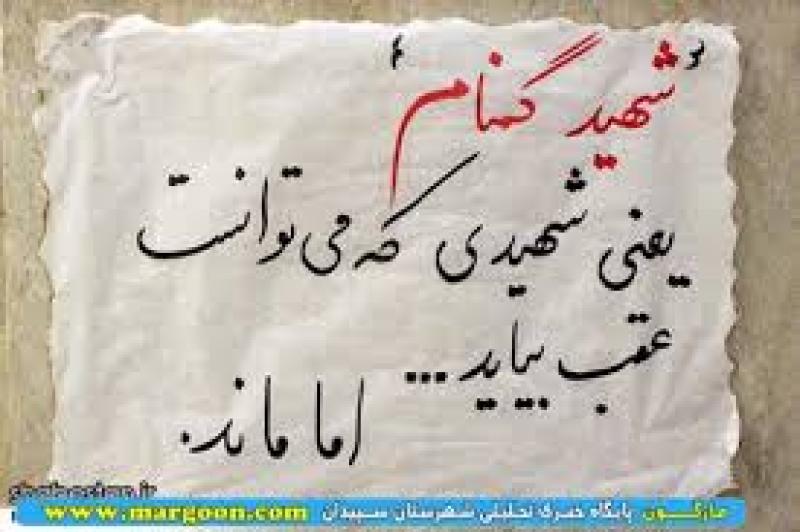 "شهید گمنام"
یعنی شهیدی که می توانست
عقب بیاید...
اما ماند.
مارگون پایگاه خبری تحلیلی شهرستان سپیدان www.margoon.com